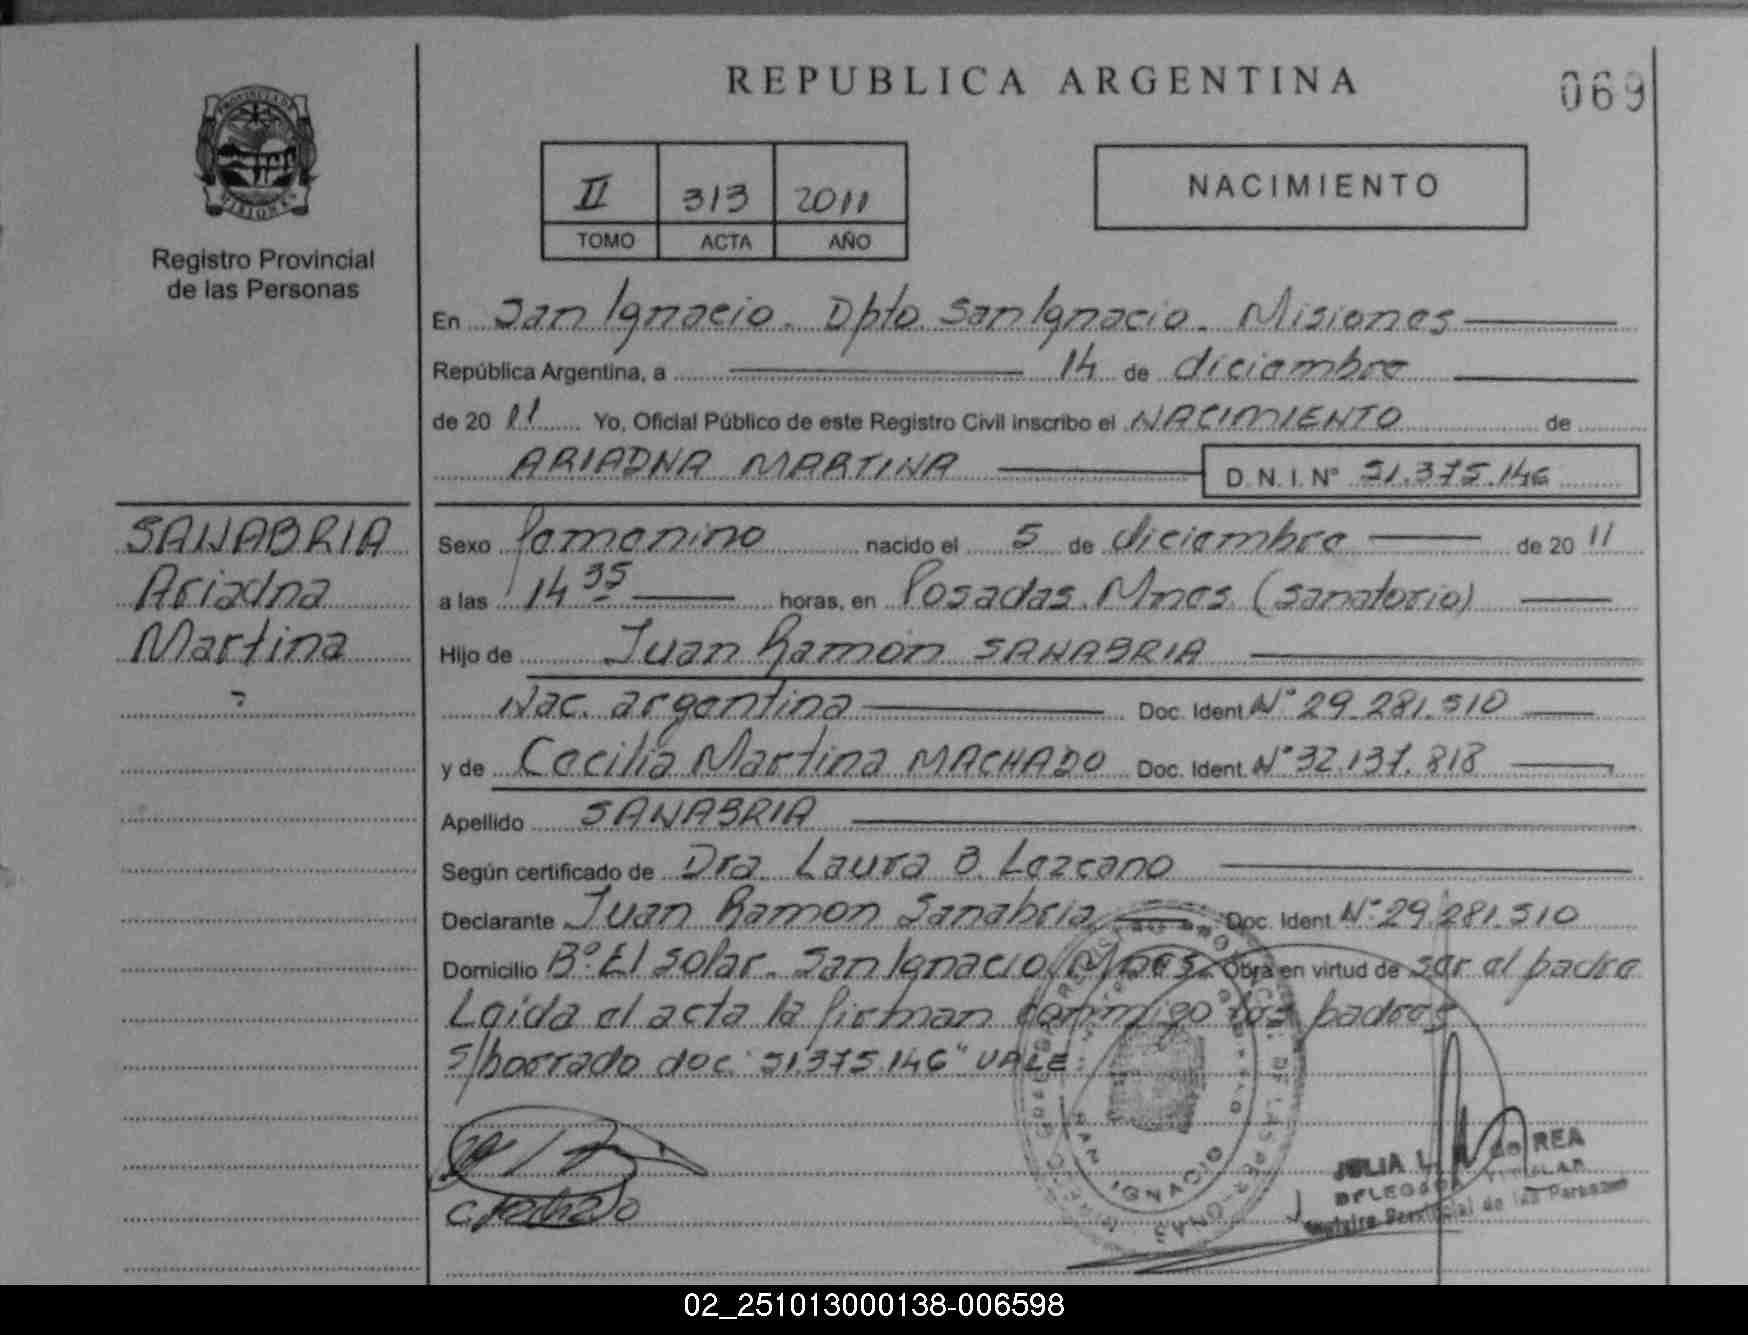 REPUBLICA ARGENTINA
069
PROVINCIA DE
MISIONES
Registro Provincial
de las Personas
II 313 2011
TOMO ACTA AÑO
NACIMIENTO
En San Ignacio. Dpto San Ignacio. Misiones
República Argentina, a 14 de diciembre
de 20 11 Yo, Oficial Público de este Registro Civil inscribo el NACIMIENTO de
ARIADNA MARTINA D.N.I. Nº 51.375.146
SANABRIA
Ariadna
Martina
Sexo femenino nacido el 5 de diciembre de 20 11
a las 14 35 horas, en Posadas. Mnes. (sanatorio)
Hijo de Juan Ramón SANABRIA
Nac. argentina Doc. Ident. Nº 29.281.510
y de Cecilia Martina MACHADO Doc. Ident. Nº 32.137.818
Apellido SANABRIA
Según certificado de Dra. Laura B. Lezcano
Declarante Juan Ramon Sanabria Doc. Ident. Nº 29.281.510
Domicilio Bº El Solar. San Ignacio Mnes. Obra en virtud de ser el padre
Leida el acta la firman conmigo los padres
S/borrado doc. "51.375.146" VALE.
SAN IGNACIO
C. Machado
JULIA L. de REA
DELEGADA TITULAR
Registro Provincial de las Personas
02_251013000138-006598